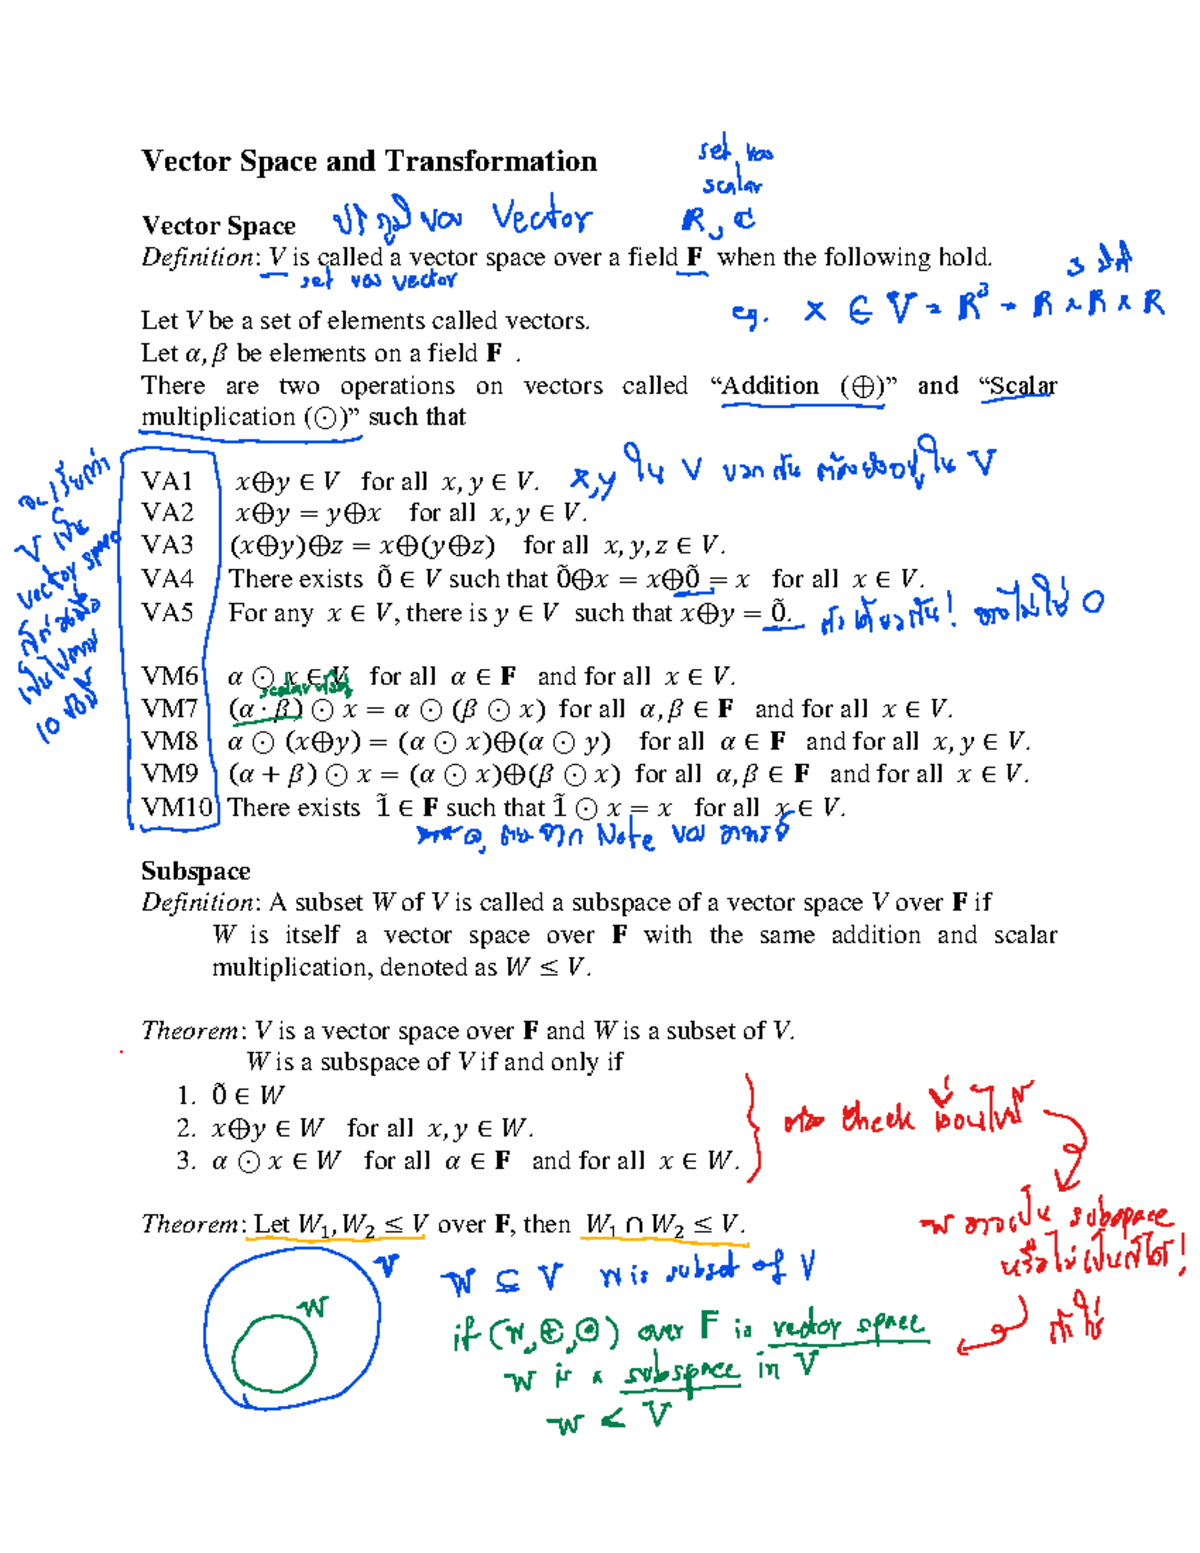 Vector Space and Transformation
set ของ
scalar
R, ℂ
Vector Space
ปริภูมิของ Vector
Definition: V is called a vector space over a field F when the following hold.
set ของ vector
3 มิติ
eg. x ∈ V = R³ = R × R × R
Let V be a set of elements called vectors.
Let α, β be elements on a field F .
There are two operations on vectors called “Addition (⊕)” and “Scalar
multiplication (⊙)” such that
จะเรียกว่า
V เป็น
vector space
ก็ต่อเมื่อ
เป็นไปตาม
10 ข้อนี้
VA1 x⊕y ∈ V for all x, y ∈ V.
x,y ใน V บวกกัน ต้องยังอยู่ใน V
VA2 x⊕y = y⊕x for all x, y ∈ V.
VA3 (x⊕y)⊕z = x⊕(y⊕z) for all x, y, z ∈ V.
VA4 There exists 0̃ ∈ V such that 0̃⊕x = x⊕0̃ = x for all x ∈ V.
VA5 For any x ∈ V, there is y ∈ V such that x⊕y = 0̃.
ตัวเดียวกัน! อาจไม่ใช่ 0
VM6 α ⊙ x ∈ V for all α ∈ F and for all x ∈ V.
VM7 (α · β) ⊙ x = α ⊙ (β ⊙ x) for all α, β ∈ F and for all x ∈ V.
VM8 α ⊙ (x⊕y) = (α ⊙ x)⊕(α ⊙ y) for all α ∈ F and for all x, y ∈ V.
VM9 (α + β) ⊙ x = (α ⊙ x)⊕(β ⊙ x) for all α, β ∈ F and for all x ∈ V.
VM10 There exists 1̃ ∈ F such that 1̃ ⊙ x = x for all x ∈ V.
จาก Note ของ อาจารย์
Subspace
Definition: A subset W of V is called a subspace of a vector space V over F if
W is itself a vector space over F with the same addition and scalar
multiplication, denoted as W ≤ V.
Theorem: V is a vector space over F and W is a subset of V.
W is a subspace of V if and only if
1. 0̃ ∈ W
2. x⊕y ∈ W for all x, y ∈ W.
3. α ⊙ x ∈ W for all α ∈ F and for all x ∈ W.
check เงื่อนไขนี้
W อาจเป็น subspace
หรือไม่เป็นก็ได้!
ถ้าใช่
Theorem: Let W₁, W₂ ≤ V over F, then W₁ ∩ W₂ ≤ V.
V
W
W ⊆ V W is subset of V
if (W, ⊕, ⊙) over F is vector space
W is a subspace in V
W < V